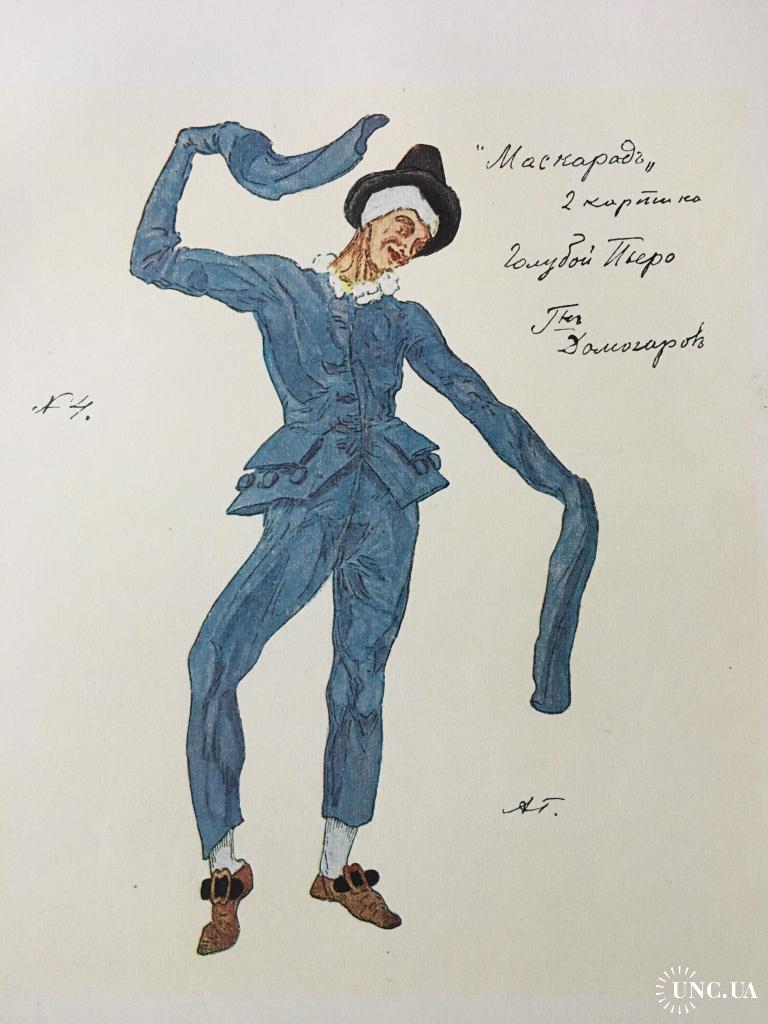 "Маскарадъ„
2 картина
Голубой Пьеро
Гнъ
Домогаровъ
№ 4.
АГ.
UNC.UA